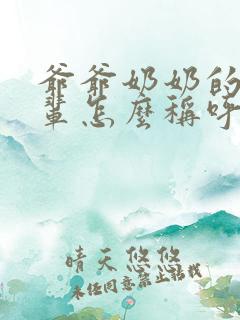 爷爷奶奶的
輩怎麼稱呼
晴天悠悠
未经同意禁止转载